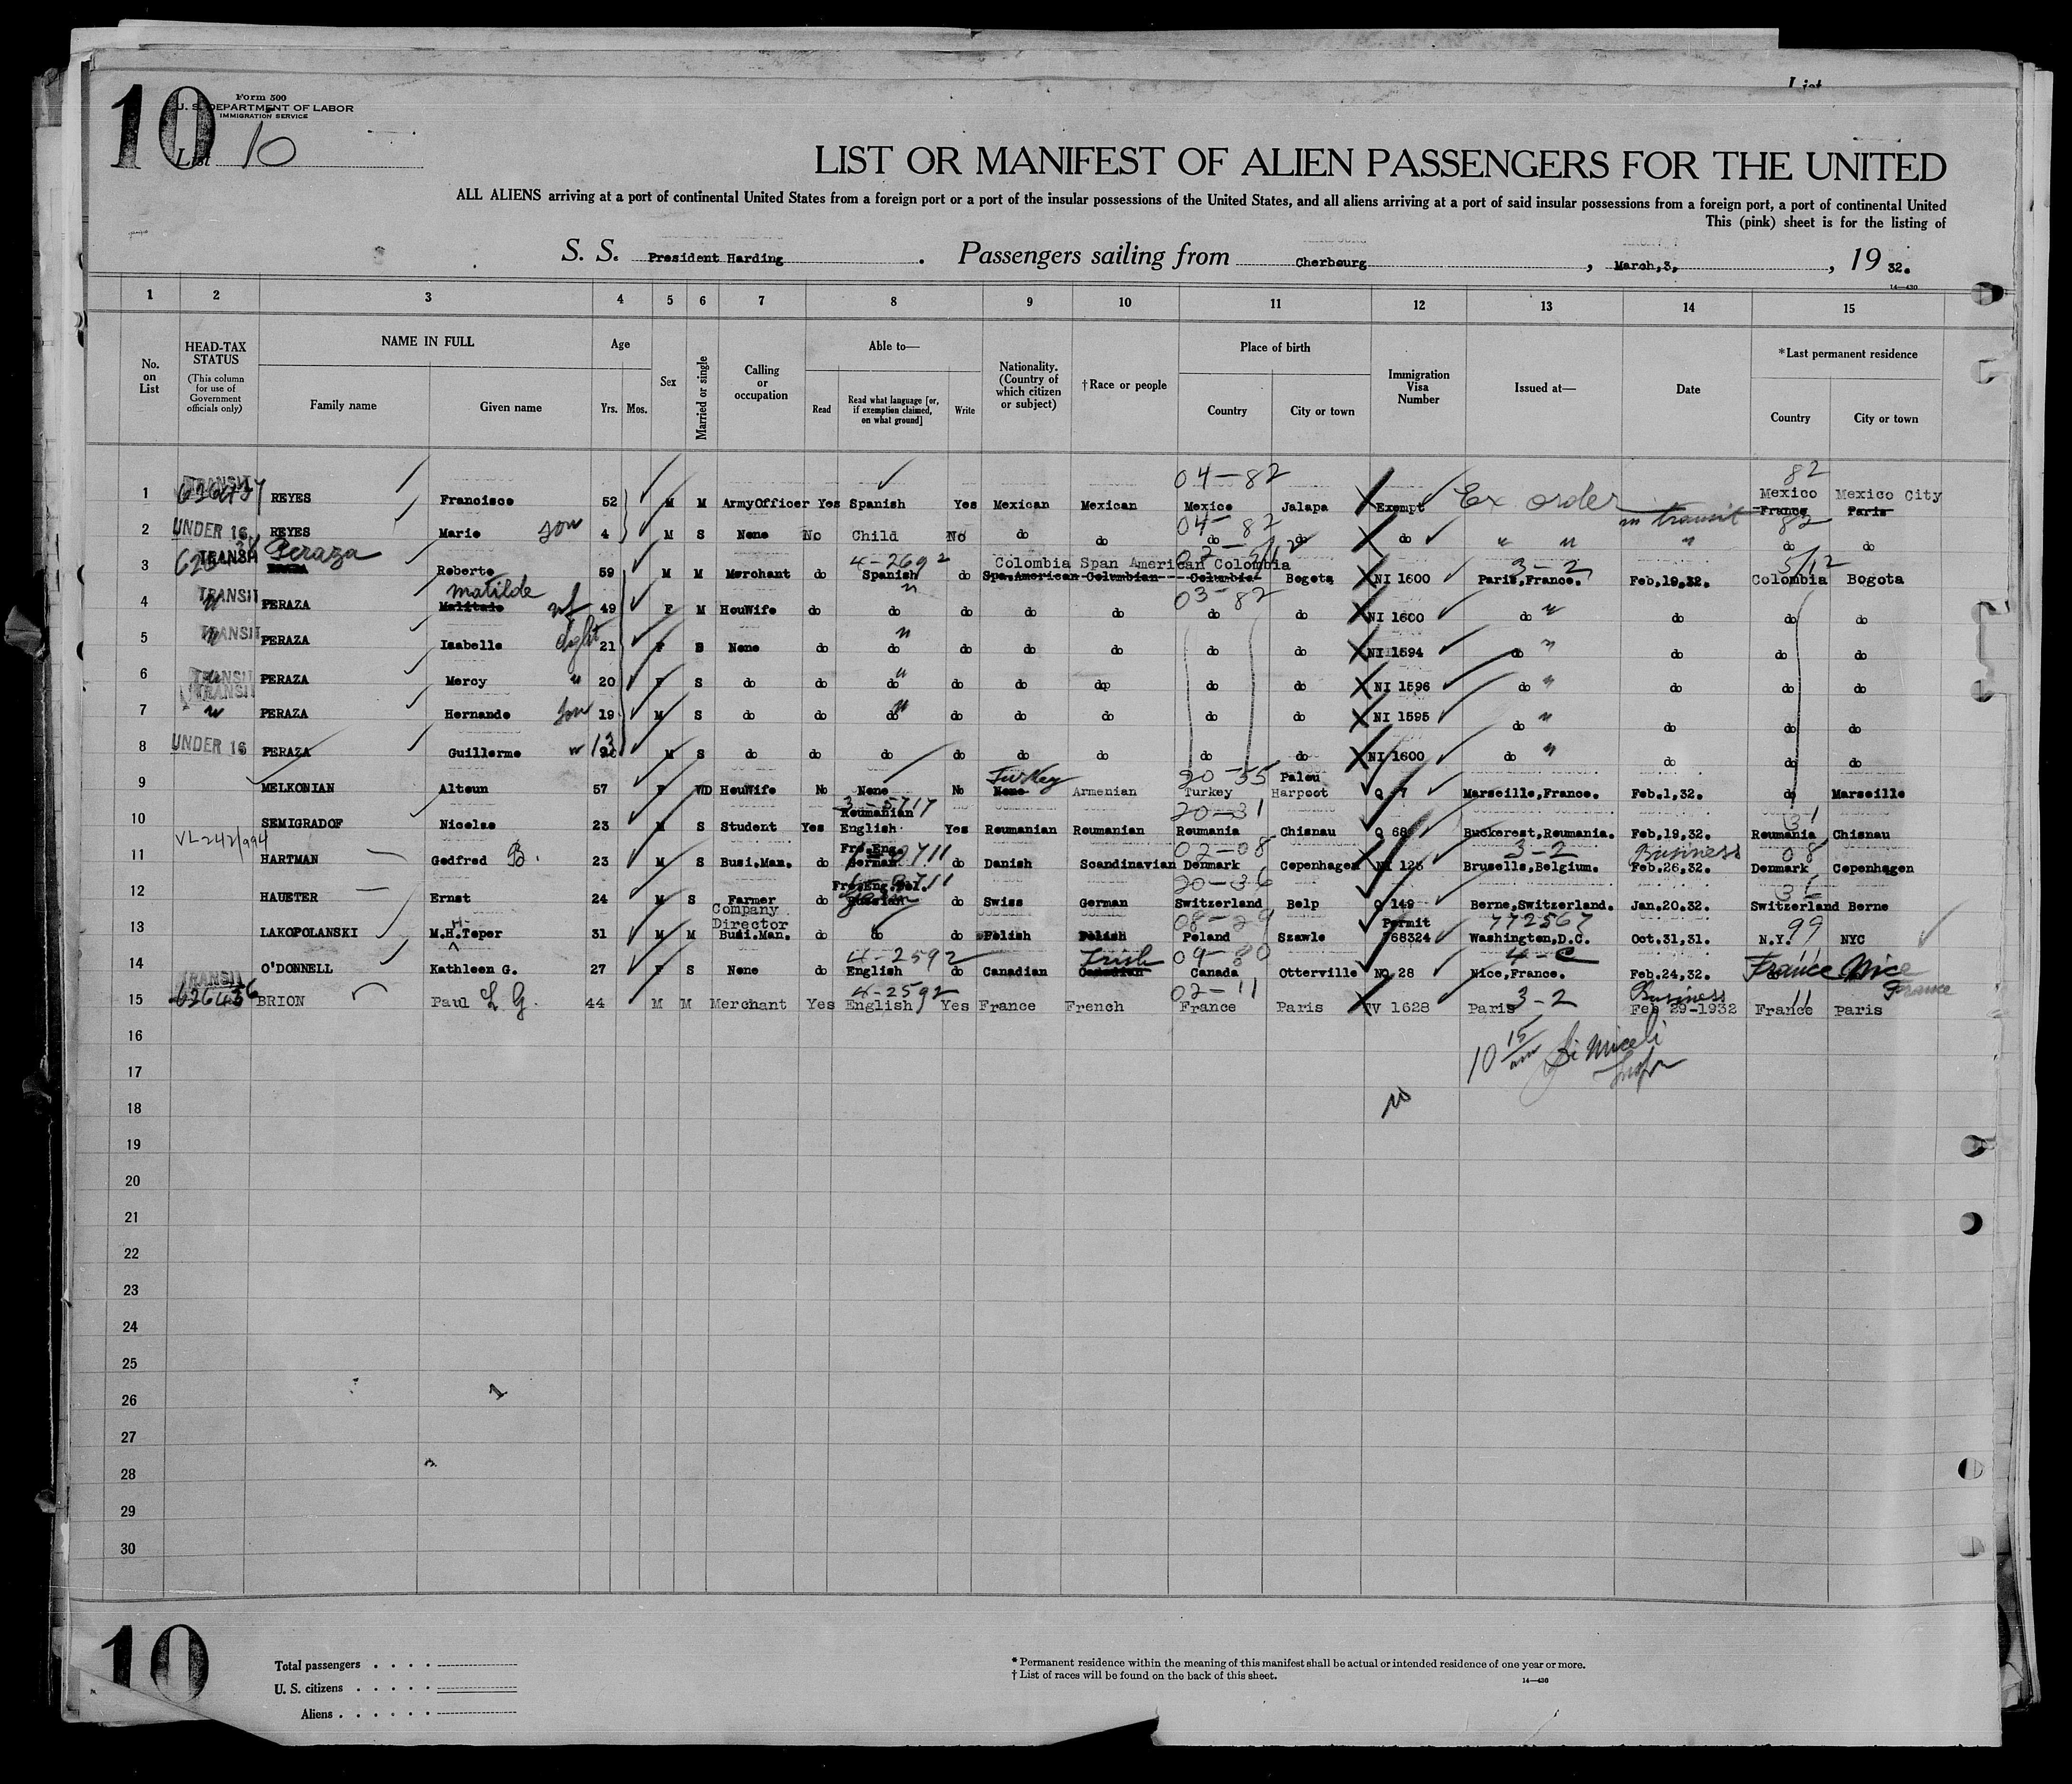 List
10
Form 500
U. S. DEPARTMENT OF LABOR
IMMIGRATION SERVICE
List 10
LIST OR MANIFEST OF ALIEN PASSENGERS FOR THE UNITED
ALL ALIENS arriving at a port of continental United States from a foreign port or a port of the insular possessions of the United States, and all aliens arriving at a port of said insular possessions from a foreign port, a port of continental United
This (pink) sheet is for the listing of
S. S. President Harding . Passengers sailing from Cherbourg , March,3, , 19 32.
14—430
1 2 3 4 5 6 7 8 9 10 11 12 13 14 15
No. on List
HEAD-TAX STATUS (This column for use of Government officials only)
NAME IN FULL Family name Given name
Age Yrs. Mos.
Sex
Married or single
Calling or occupation
Able to— Read Read what language [or, if exemption claimed, on what ground] Write
Nationality. (Country of which citizen or subject)
†Race or people
Place of birth Country City or town
Immigration Visa Number
Issued at—
Date
*Last permanent residence Country City or town
04—82 82
1 TRANSIT REYES Francisco 52 M M ArmyOfficer Yes Spanish Yes Mexican Mexican Mexico Jalapa Exempt Ex order in transit Mexico Mexico City France Paris
04— 82 82
2 UNDER 16 REYES Mario son 4 M S None No Child No do do do do do " " " do do
3 TRANSIT Peraza Roberto 59 M M Merchant do 4-2692 Spanish do Colombia Span American Colombia Spa.American Columbian Columbia Bogota NI 1600 3-2 Paris,France. Feb,19,32. 5/12 Colombia Bogota
03—82
4 TRANSIT " PERAZA Matilde wf 49 F M HouWife do do " do do do do do NI 1600 do " do do do
5 TRANSIT " PERAZA Isabelle dght 21 F S None do do " do do do do do NI 1594 do " do do do
6 TRANSIT " PERAZA Mercy " 20 F S do do do " do do do do do NI 1596 do " do do do
7 TRANSIT " PERAZA Hernando son 19 M S do do do " do do do do do NI 1595 do " do do do
8 UNDER 16 PERAZA Guillermo " 13 M S do do do do do do do do NI 1600 do " do do do
9 MELKONIAN Altoun 57 F WD HouWife No None No Turkey None Armenian 20-55 Turkey Palou Harpoot Q 7 Marseille,France. Feb.1,32. do Marseille
10 SEMIGRADOF Nicolae 23 M S Student Yes 3-5717 Roumanian English Yes Roumanian Roumanian 20-31 Roumania Chisnau Q 68 Buckerest,Roumania. Feb,19,32. 31 Roumania Chisnau
VL-242/994
11 HARTMAN Godfred B. 23 M S Busi.Man. do Fre.Eng. German do Danish Scandinavian 02-08 Denmark Copenhagen NI 125 3-2 Brusells,Belgium. Business Feb.26,32. 08 Denmark Copenhagen
12 HAUETER Ernst 24 M S Farmer do do Swiss German 20-36 Switzerland Belp Q 149 Berne,Switzerland. Jan.20.32. Switzerland Berne
13 LAKOPOLANSKI M.H.Teper 31 M M Company Director Busi.Man. do do do Polish Polish 08-29 Poland Szawle Permit 768324 772567 Washington,D.C. Oct.31,31. 99 N.Y. NYC
14 O'DONNELL Kathleen G. 27 F S None do 4-2592 English do Canadian Irish Canadian Canada Otterville NQ 28 4-C Nice,France. Feb.24,32. France Nice
France
15 TRANSIT 626436 BRION Paul L G. 44 M M Merchant Yes 4-2592 English Yes France French 02-11 France Paris TV 1628 Paris 3-2 Business Feb 29-1932 11 France Paris
16
10 15/am
17
18
19
20
21
22
23
24
25
26
27
28
29
30
10
Total passengers . . . .
U. S. citizens . . . . .
Aliens . . . . . .
* Permanent residence within the meaning of this manifest shall be actual or intended residence of one year or more.
† List of races will be found on the back of this sheet.
14—430